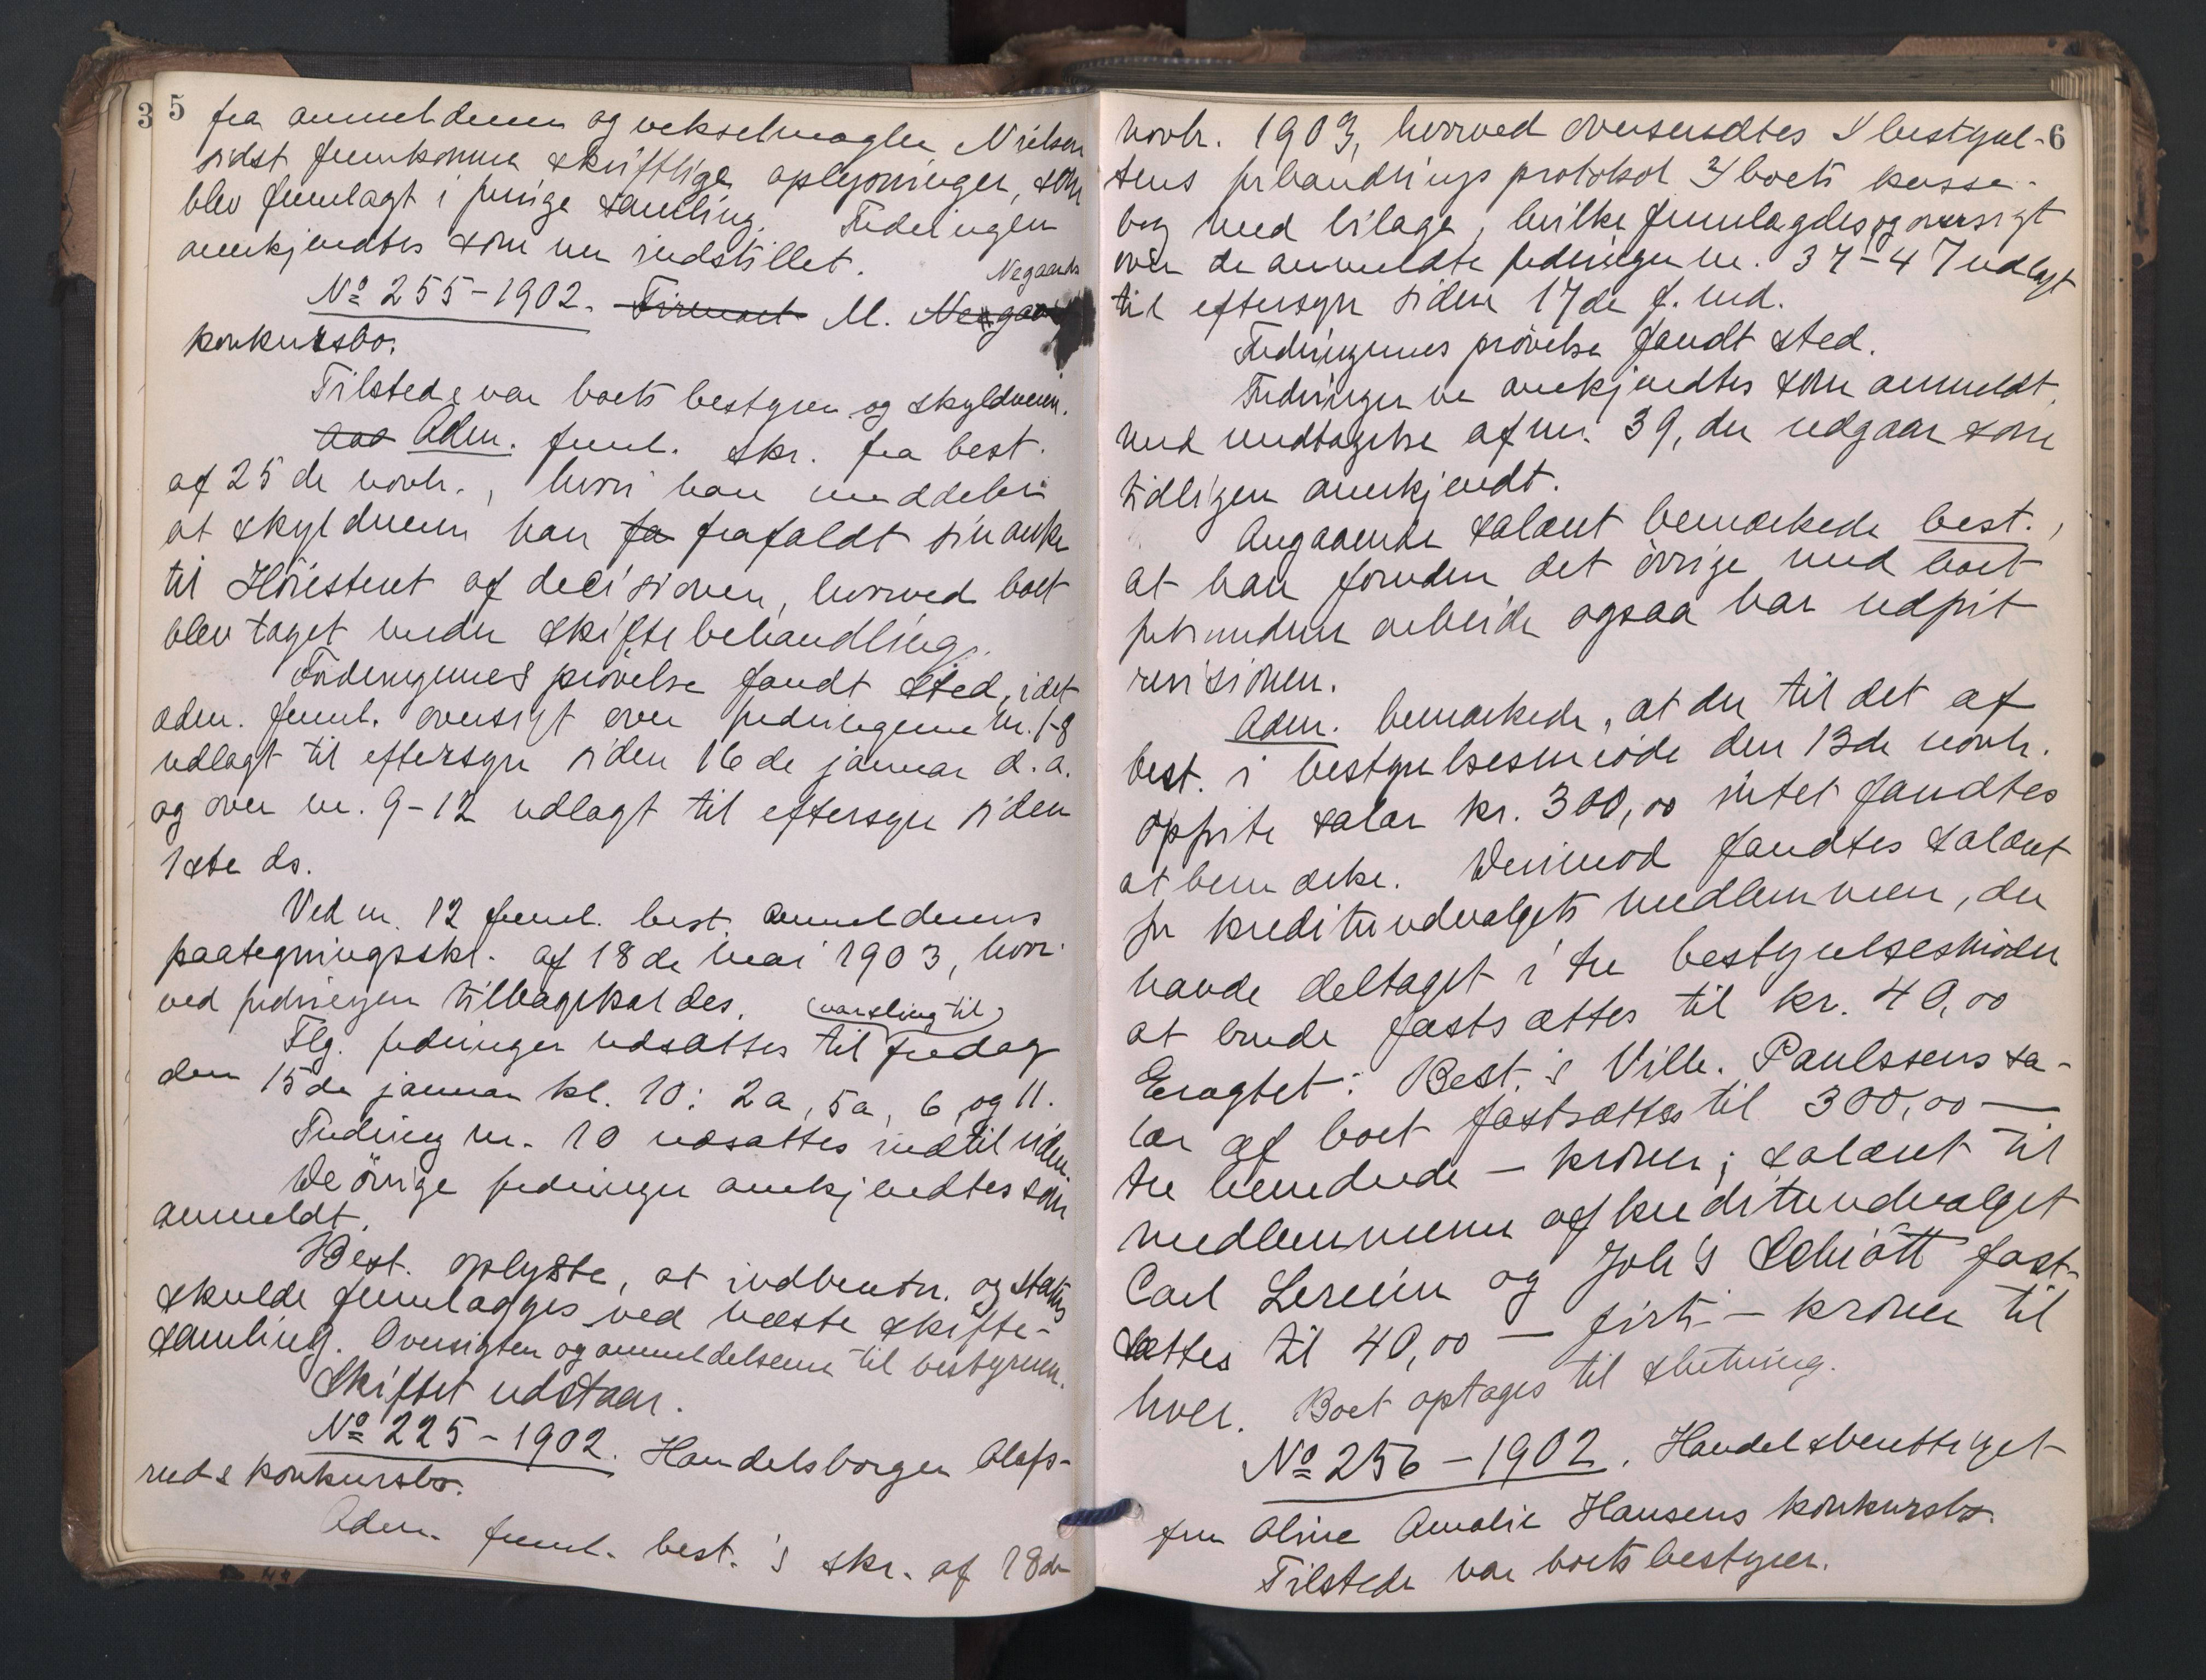 3 5
fra anmelderen og vekselmægler Nielsen
sidst fremkomne skriftlige oplysninger, som
blev fremlagt i forrige samling. Fordringen
anerkjendtes som nu indstillet.
Negaards
No 255-1902. Firmaet M. Negaards
konkursbo.
Tilstede var boets bestyrer og skyldneren.
Aad Adm. freml. skr. fra best.
af 25de novbr., hvori han meddeler
at skyldneren har fa frafaldt sin anke
til Höiesteret af decisionen, hvorved boet
blev taget under skiftebehandling.
Fordringernes prövelse fandt sted, idet
adm. freml. oversigt over fordringerne nr. 1-8
udlagt til eftersyn siden 16de januar d.a.
og over nr. 9-12 udlagt til eftersyn siden
1ste ds.
Ved nr. 12 freml. best. anmelderens
paategningsskr. af 18de mai 1903, hvor-
ved fordringen tilbagekaldes.
(varsling til)
Flg. fordringer udsattes til fredag
den 15de januar kl. 10: 2a, 5a, 6 og 11.
Fordring nr. 10 udsattes indtil videre.
De övrige fordringer anerkjendtes som
anmeldt.
Best. oplyste, at indberetn. og status
skulde fremlægges ved næste skifte-
samling. Oversigten og anmeldelserne til bestyreren.
Skiftet udstaar.
No 225-1902. Handelsborger Olafs-
ruds konkursbo.
Adm. freml. best.'s skr. af 18de
6
novbr. 1903, hvorved oversendtes 1/ bestyrel-
sens forhandlingsprotokol 2/ boets kasse-
bog med bilage, hvilke fremlagdes og oversigt
over de anmeldte fordringer nr. 37-47 udlagt
til eftersyn siden 17de f. md.
Fordringernes prövelse fandt sted.
Fordringerne anerkjendtes som anmeldt,
med undtagelse af nr. 39, der udgaar som
tidligere anerkjendt.
Angaaende salæret bemærkede best.,
at han foruden det övrige med boet
forbundne arbeide ogsaa har udfört
revisionen.
Adm. bemærkede, at der til det af
best. i bestyrelsesmöde den 13de novbr.
opförte salær kr. 300,00 intet fandtes
at bemærke. Derimod fandtes salæret
for kreditorudvalgets medlemmer, der
havde deltaget i tre bestyrelsesmöder
at burde fastsættes til kr. 40,00
Eragtet: Best.'s Vilh. Paulssens sa-
lær af boet fastsættes til 300,00 —
tre hundrede — kroner; salæret til
medlemmerne af kreditorudvalget
Carl Lereim og Joh's Schiött fast-
sættes til 40,00 — firti — kroner til
hver. Boet optages til slutning.
No 256-1902. Handelsberettiget
fru Oline Amalie Hansens konkursbo.
Tilstede var boets bestyrer.